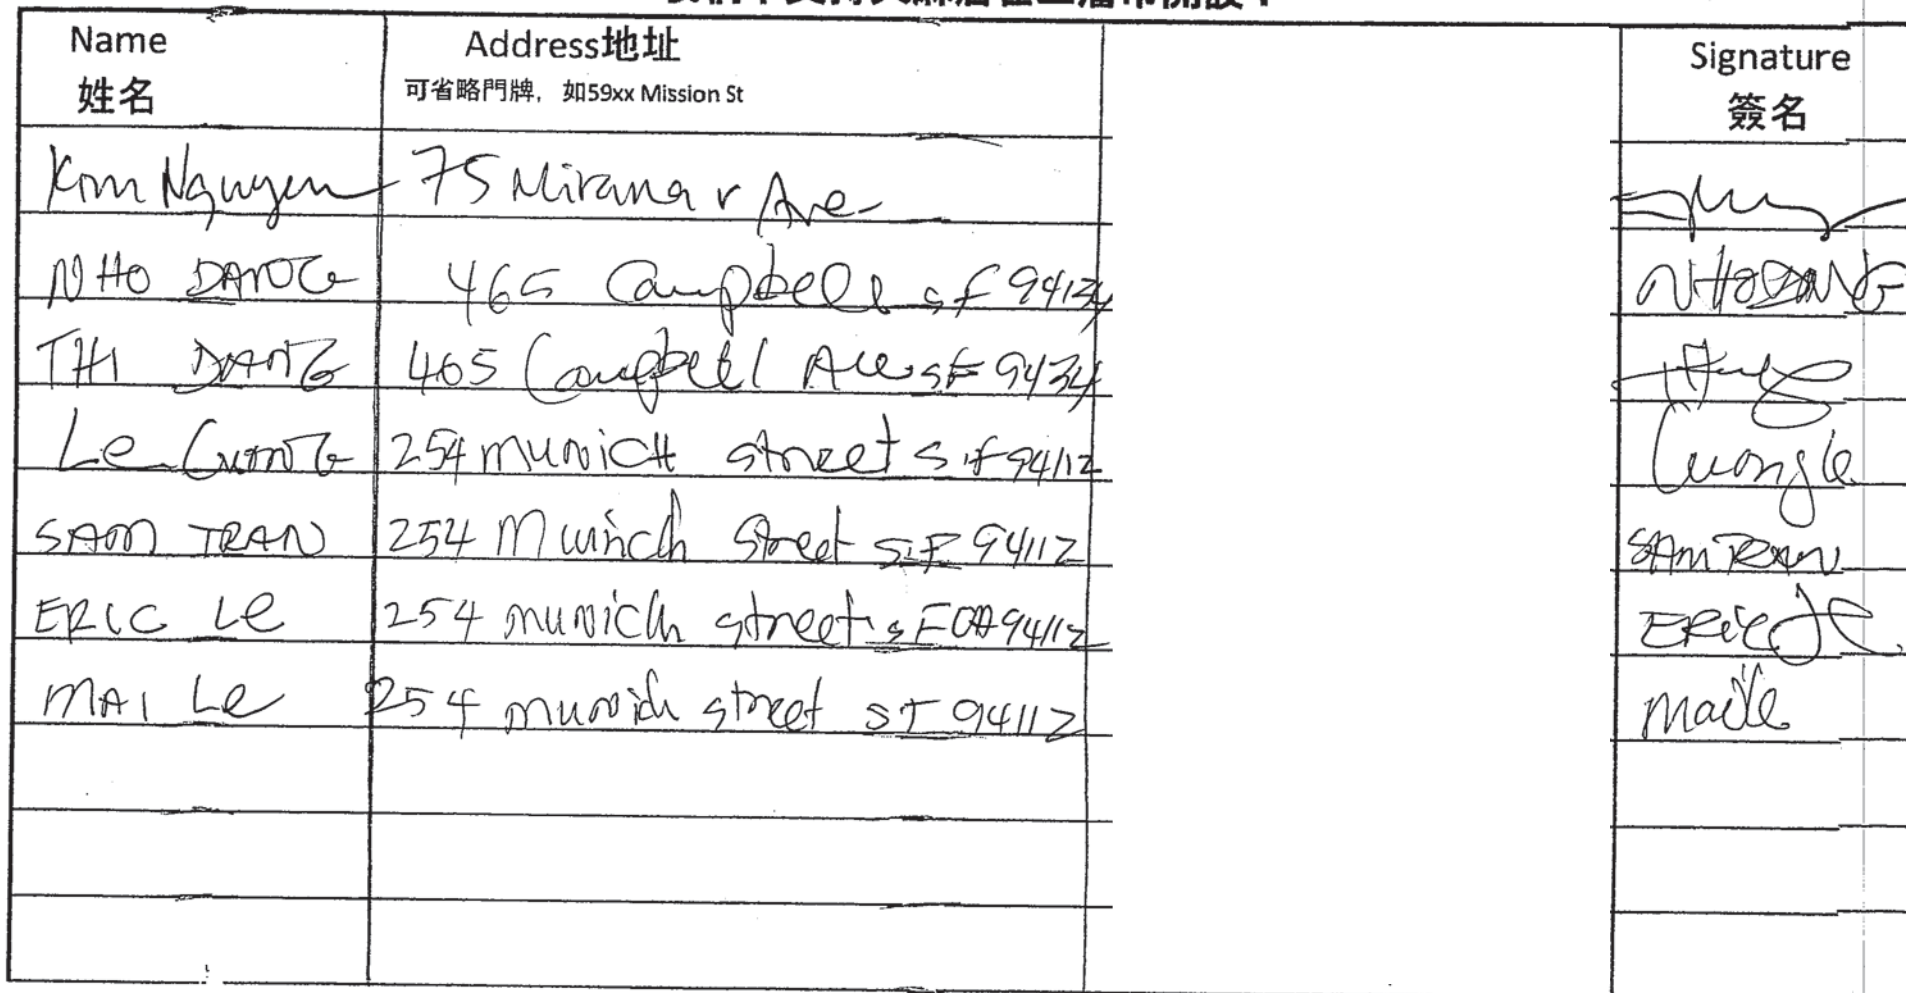 Name Address地址 Signature
姓名 可省略門牌，如59xx Mission St 簽名
Kim Nguyen 75 Miramar Ave
NHO DANG 465 Campbell SF 94134 NHO DANG
THI DANG 465 Campbell Ave SF 94134
Le CuonG 254 municH street S.F 94112 Cuong le
SAM TRAN 254 Munich Street S.F 94112 SAM TRAN
ERIC Le 254 munich street SF CA 94112 ERic Le
MAI Le 254 munich street SF 94112 mai le